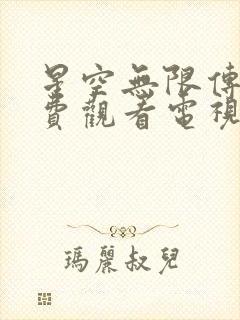 星空無限傳
費觀看電視
瑪麗叔兒